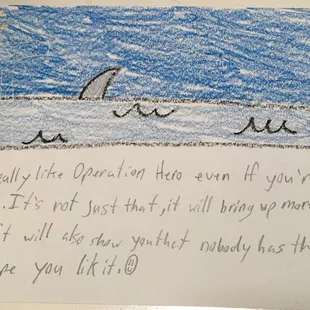 eally like Operation Hero even if you'r
. It's not just that, it will bring up more
t will also show youthct nobody has th
pe you likit.